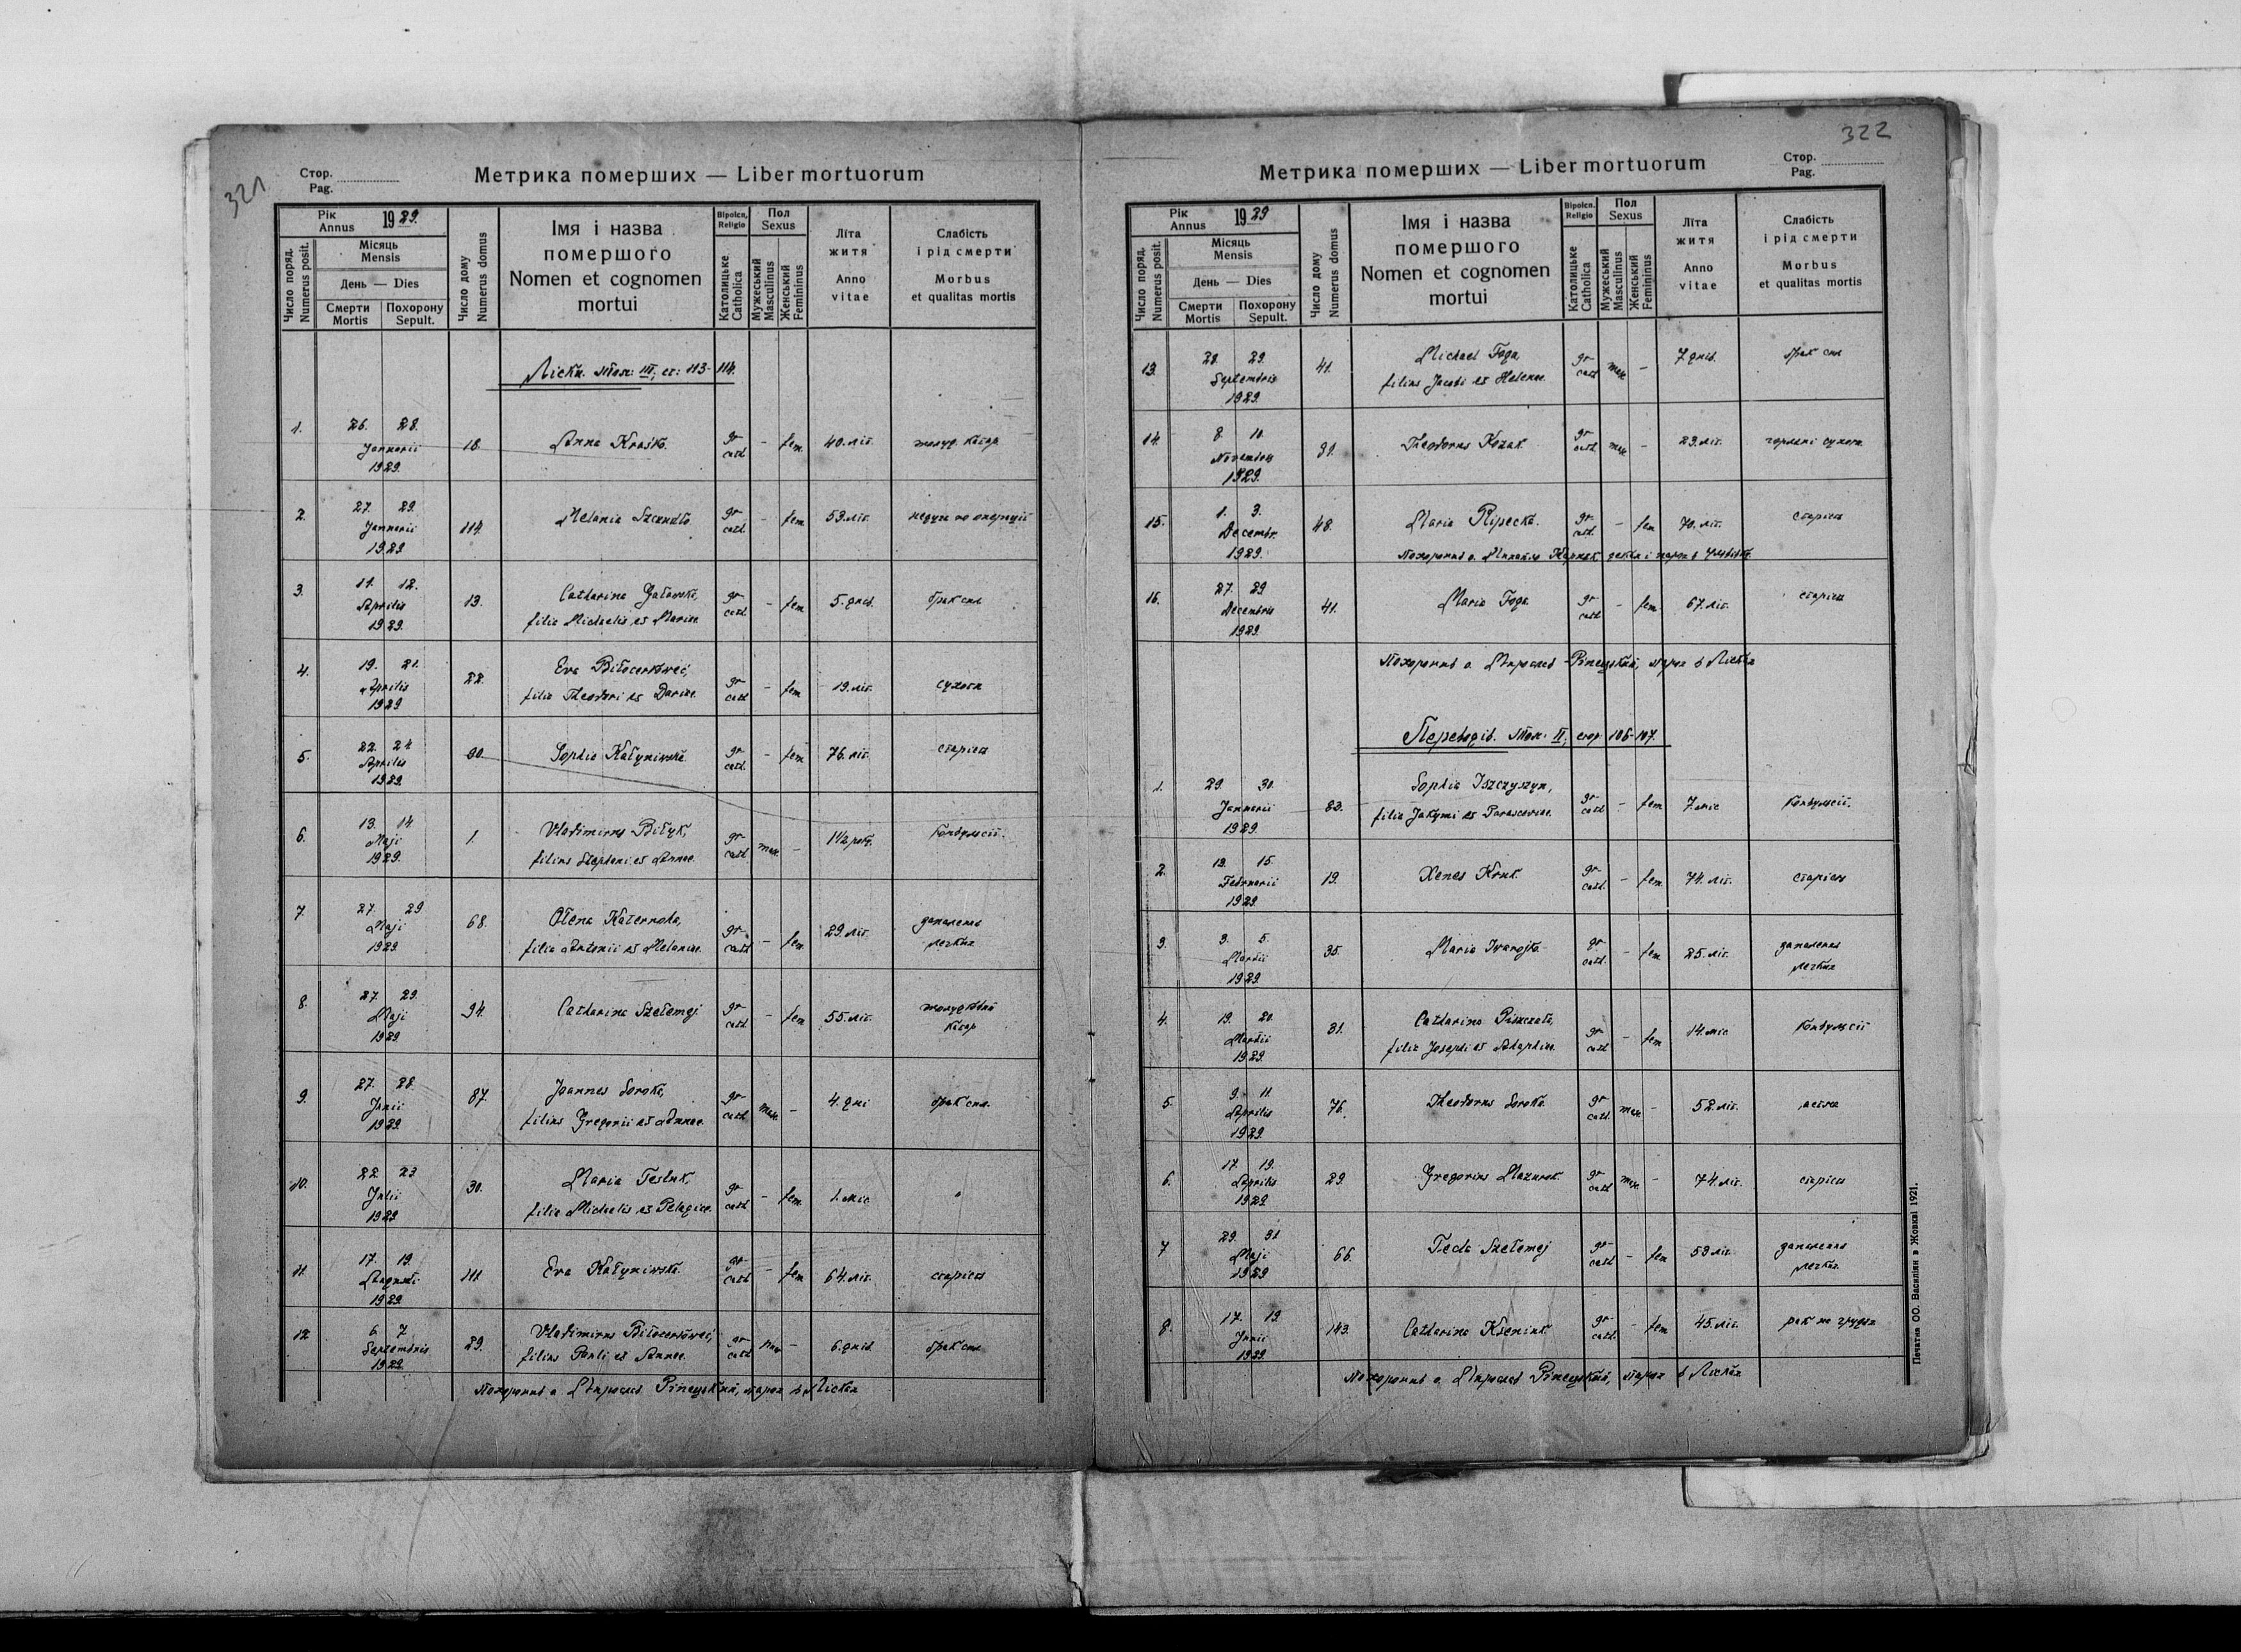 321
Стор.
Pag.
Метрика померших — Liber mortuorum
Число поряд.
Numerus posit.
Рік
Annus
1929.
Місяць
Mensis
День — Dies
Смерти
Mortis
Похорону
Sepult.
Число дому
Numerus domus
Імя і назва
помершого
Nomen et cognomen
mortui
Віроісп.
Religio
Католицьке
Catholica
Пол
Sexus
Мужеський
Masculinus
Женський
Femininus
Літа
житя
Anno
vitae
Слабість
і рід смерти
Morbus
et qualitas mortis
Ліски. Том: III; ст: 113-114.
1. 26. 28. Januarii 1929. 18. Anna Kraśko. gr cath - fem. 40. літ. катар
2. 27. 29. Januarii 1929 114. Melania gr cath. - fem 53. літ. недуга по операції
3. 11. 12. Aprilis 1929. 13. Catharina
filia Michaelis et Mariae gr cath. - fem 5. днів. брак сил
4. 19. 21. Aprilis 1929 22. Eva Biłocerkóweć,
filia Theodori et Dariae. gr cath - fem 19. літ. сухоти
5. 22. 24 Aprilis 1929. 90. Sophia Kałyniwska. gr cath. - fem 76. літ. старість
6. 13. 14. Maji 1929. 1. Vladimirus Biłyk,
filius Stephani et Annae. gr cath mas. - 1 1/2 рок. конвульсії.
7. 27. 29 Maji 1929 68. Ołena
filia Antonii et Melaniae. gr cath - fem 29. літ. запаленє
легких
8. 27. 29. Maji 1929 94. Catharina Szełemej gr cath - fem 55. літ. жолудковий
катар
9. 27. 28. Junii 1929. 87. Joannes Soroka,
filius Gregorii et Annae. gr cath mas. - 4. дні брак сил.
10. 22. 23 Julii 1929 30. Maria Tesluk,
filia Michaelis et Pelagiae. gr cath - fem 1. міс "
11. 17. 19. Augusti 1929. 111. Eva Kałyniwska. gr cath - fem 64. літ. старість
12 6. 7 Septembris 1929 29. Vladimirus Biłocerkóweć,
filius Pauli et Annae. gr cath mas - 6. днів. брак сил
Похоронив о. Мирослав Ріпецький, парох в Лісках
322
Стор.
Pag.
Метрика померших — Liber mortuorum
Число поряд.
Numerus posit.
Рік
Annus
1929
Місяць
Mensis
День — Dies
Смерти
Mortis
Похорону
Sepult.
Число дому
Numerus domus
Імя і назва
помершого
Nomen et cognomen
mortui
Віроісп.
Religio
Католицьке
Catholica
Пол
Sexus
Мужеський
Masculinus
Женський
Femininus
Літа
житя
Anno
vitae
Слабість
і рід смерти
Morbus
et qualitas mortis
13. 28. 29. Septembris 1929. 41. Michael Foga,
filius Jacobi et Helenae. gr cath mas - 7. днів. брак сил
14. 8. 10. Novembris 1929. 31. Theodorus Kozak. gr cath mas - 23. літ. горляні сухоти
15. 1. 3. Decembr. 1929. 48. Maria Ripecka. gr cath. - fem 70. літ. старість
Похоронив о. декан і парох в
16. 27. 29 Decembris 1929. 41. Maria Foga gr cath - fem 67. літ. старість
Похоронив о. Мирослав Ріпецький, парох в Лісках
Переводів. Том: II; стор 106-107.
1. 29. 30. Januarii 1929. 83. Sophia Iszczyszyn,
filia Jakymi et Parasceviae. gr cath. - fem 7. міс конвульсії.
2. 13. 15. Februarii 1929 19. Xenes Kruk. gr cath. - fem. 74. літ. старість
3. 3. 5. Martii 1929. 35. Maria gr cath. - fem. 25. літ. запаленє
легких
4. 19. 20. Martii 1929. 31. Catharina
filia Josephi et gr cath - fem 14. міс конвульсії
5. 9. 11. Aprilis 1929. 76. Theodorus Soroka. gr cath. mas - 52. літ. астма
6. 17. 19. Aprilis 1929 29. Gregorius Mazurok. gr cath mas - 74. літ. старість
7 29. 31 Maji 1929 66. Teda Szełemej gr cath - fem 53 літ. запаленє
легких.
8. 17. 19 Junii 1929. 143. Catharina Kseniuk. gr cath. - fem 45. літ. рак на грудях
Похоронив о. Мирослав Ріпецький, парох в Лісках
Печатня ОО. Василіян в Жовкві 1921.